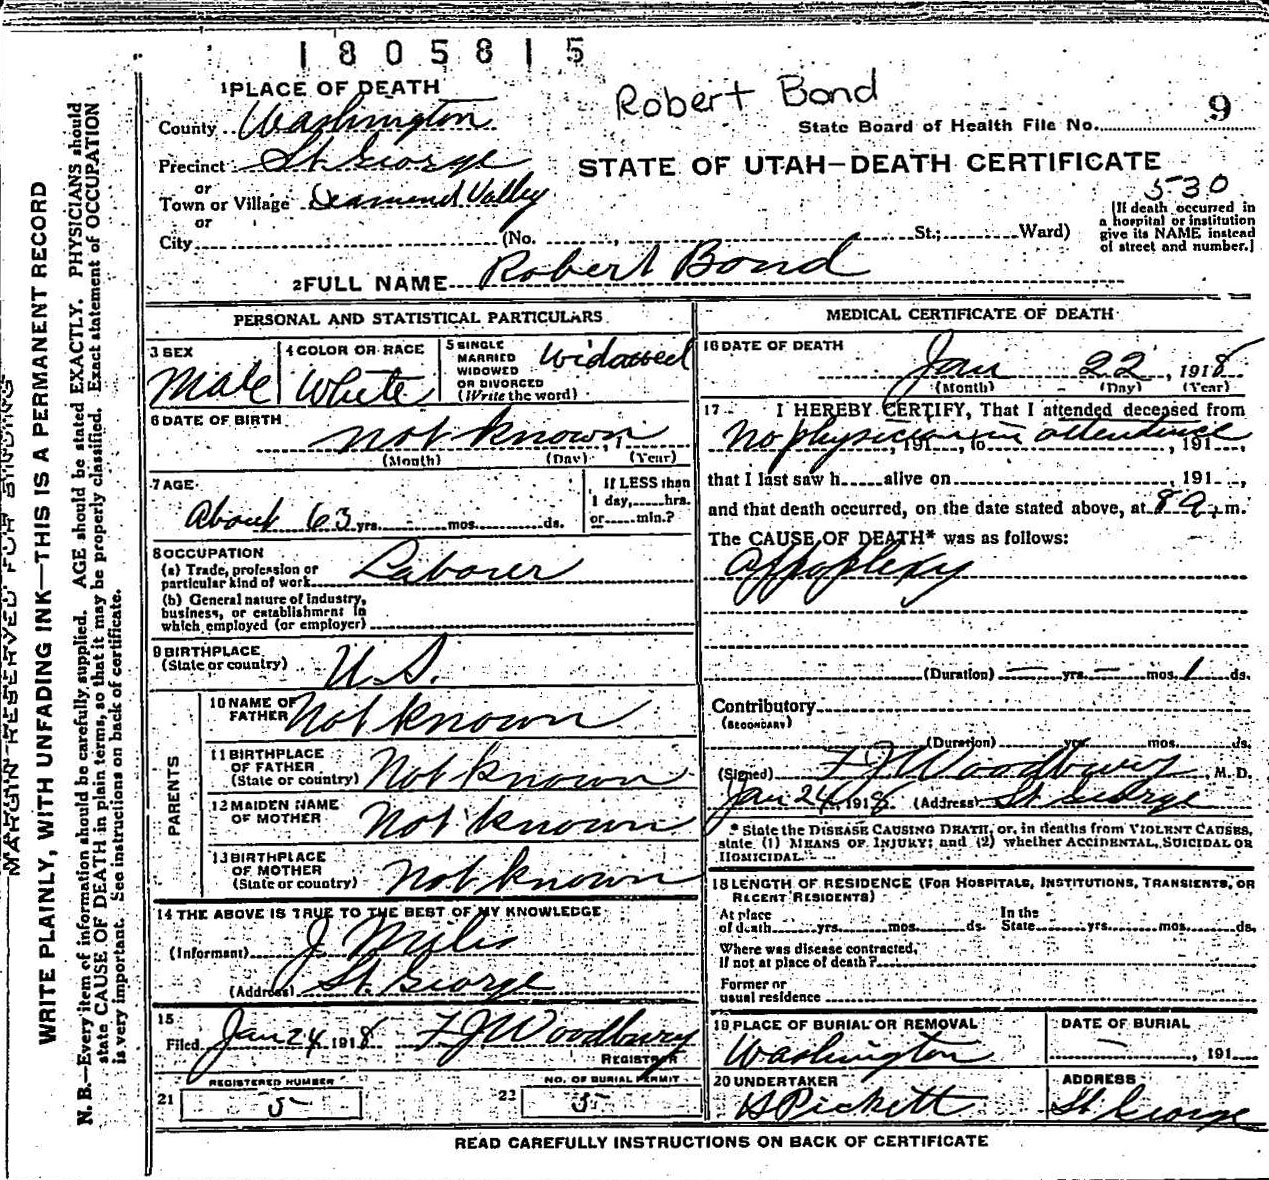 1805815
Robert Bond
1 PLACE OF DEATH
County Washington
State Board of Health File No. 9
Precinct St George
STATE OF UTAH—DEATH CERTIFICATE
or
Town or Village Diamond Valley
530
or
City (No. , St.; Ward)
[If death occurred in
a hospital or institution
give its NAME instead
of street and number.]
2 FULL NAME Robert Bond
PERSONAL AND STATISTICAL PARTICULARS
3 SEX
Male
4 COLOR OR RACE
White
5 SINGLE
MARRIED
WIDOWED
OR DIVORCED
(Write the word)
Widowed
6 DATE OF BIRTH
not known
(Month) (Day) (Year)
7 AGE
About 63 yrs. mos. ds.
If LESS than
1 day, hrs.
or min.?
8 OCCUPATION
(a) Trade, profession or
particular kind of work Laborer
(b) General nature of industry,
business, or establishment in
which employed (or employer)
9 BIRTHPLACE
(State or country) U.S.
PARENTS
10 NAME OF
FATHER Not known
11 BIRTHPLACE
OF FATHER
(State or country) Not known
12 MAIDEN NAME
OF MOTHER Not known
13 BIRTHPLACE
OF MOTHER
(State or country) Not known
14 THE ABOVE IS TRUE TO THE BEST OF MY KNOWLEDGE
(Informant) J Miles
(Address) St. George
15
Filed Jan 24 1918 F J Woodbury
REGISTRAR
REGISTERED NUMBER
21 5
NO. OF BURIAL PERMIT
22 5
MEDICAL CERTIFICATE OF DEATH
16 DATE OF DEATH
Jan 22, 1918
(Month) (Day) (Year)
17 I HEREBY CERTIFY, That I attended deceased from
No physician in attendence , 191 , to , 191 ,
that I last saw h alive on , 191 ,
and that death occurred, on the date stated above, at 8 a. m.
The CAUSE OF DEATH* was as follows:
Appoplexy
(Duration) — yrs. — mos. 1 ds.
Contributory
(SECONDARY)
(Duration) yrs. mos. ds.
(Signed) F J Woodbury, M. D.
Jan 24, 1918 (Address) St George
* State the DISEASE CAUSING DEATH, or, in deaths from VIOLENT CAUSES,
state (1) MEANS OF INJURY; and (2) whether ACCIDENTAL, SUICIDAL OR
HOMICIDAL.
18 LENGTH OF RESIDENCE (FOR HOSPITALS, INSTITUTIONS, TRANSIENTS, OR
RECENT RESIDENTS)
At place
of death yrs. mos. ds.
In the
State yrs. mos. ds.
Where was disease contracted,
If not at place of death?
Former or
usual residence
19 PLACE OF BURIAL OR REMOVAL
Washington
DATE OF BURIAL
— , 191
20 UNDERTAKER
H Pickett
ADDRESS
St George
READ CAREFULLY INSTRUCTIONS ON BACK OF CERTIFICATE
MARGIN RESERVED FOR BINDING
WRITE PLAINLY, WITH UNFADING INK—THIS IS A PERMANENT RECORD
N. B.—Every item of information should be carefully supplied. AGE should be stated EXACTLY. PHYSICIANS should
state CAUSE OF DEATH in plain terms, so that it may be properly classified. Exact statement of OCCUPATION
is very important. See instructions on back of certificate.